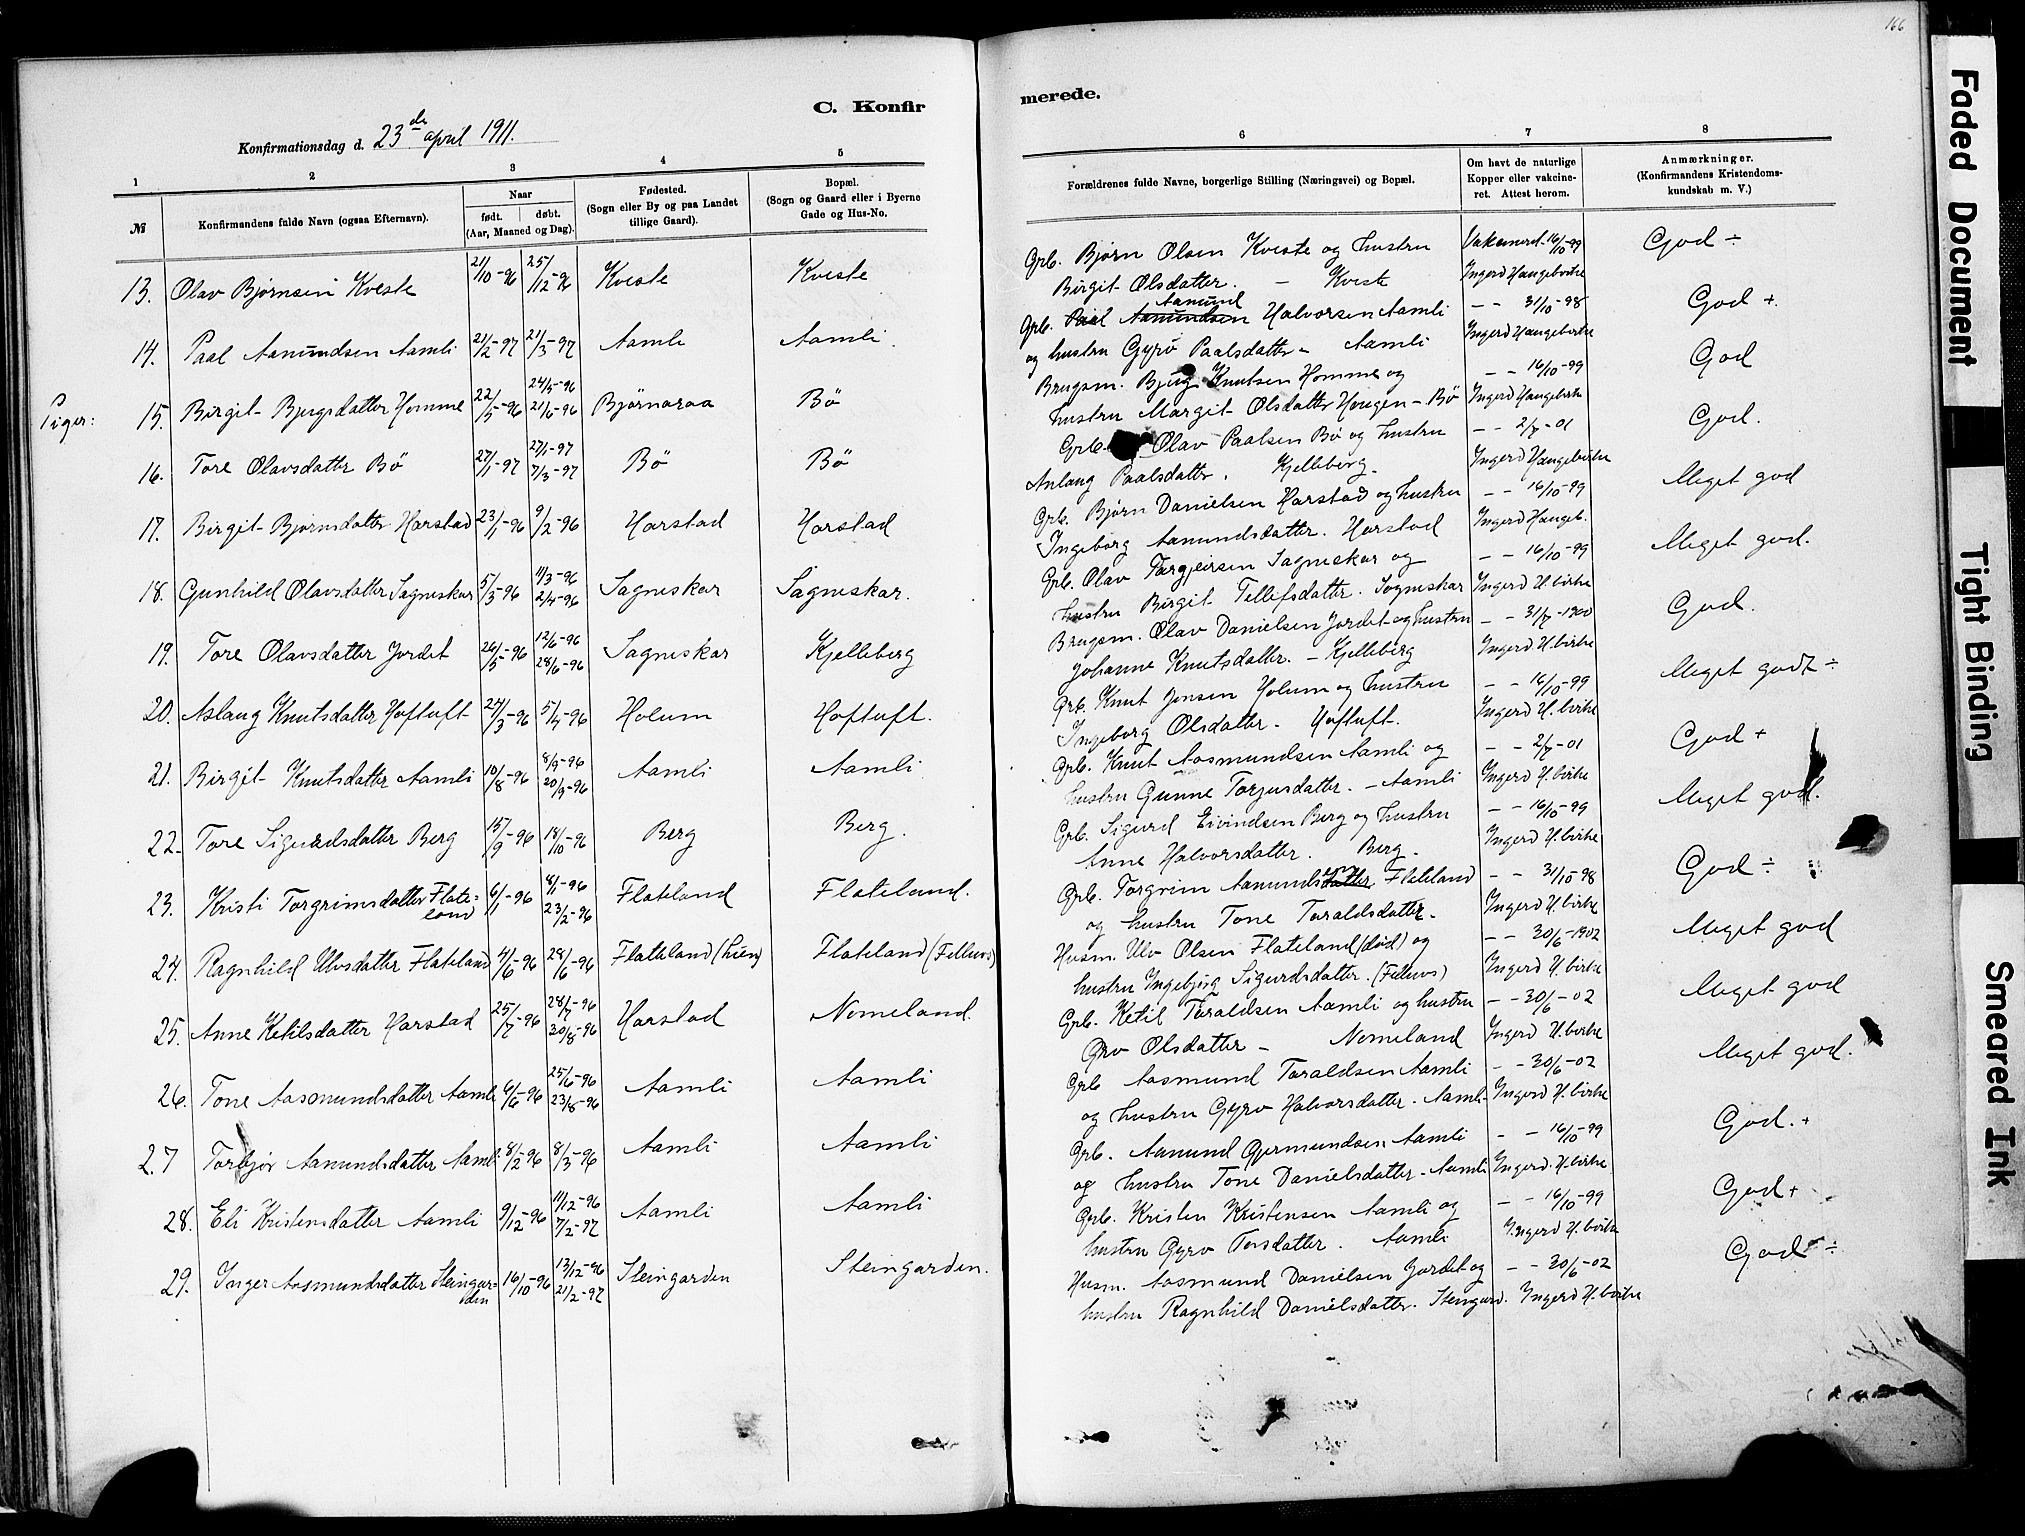 166
C. Konfir
merede.
Konfirmationsdag d. 23de april 1911.
1 2 3 4 5
№ Konfirmandens fulde Navn (ogsaa Efternavn). Naar født. døbt. (Aar, Maaned og Dag). Fødested. (Sogn eller By og paa Landet tillige Gaard). Bopæl. (Sogn og Gaard eller i Byerne Gade og Hus-No.
13. Olav Bjørnsen Kveste 21/10-96 25/12-96 Kveste Kveste
14. Paal Aanundsen Aamli 21/2-97 21/3-97 Aamli Aamli.
Piger: 15. Birgit Bjugsdatter Homme 22/5-96 24/5-96 21/6-96 Bjørnaraa Bö
16. Tore Olavsdatter Bö 27/1-97 27/1-97 7/3-97 Bö Bö
17. Birgit Bjørnsdatter Harstad 23/1-96 9/2-96 Harstad Harstad
18. Gunhild Olavsdatter Sagneskar 5/3-96 11/3-96 2/4-96 Sagneskar Sagneskar.
19. Tore Olavsdatter Jordet 26/5-96 12/6-96 28/6-96 Sagneskar Kjelleberg
20. Aslaug Knutsdatter Hoftuft 24/3-96 5/4-96 Holum Hoftuft.
21. Birgit Knutsdatter Aamli 10/8-96 8/9-96 20/9-96 Aamli Aamli
22. Tore Sigurdsdatter Berg 15/9-96 18/10-96 Berg Berg.
23. Kristi Torgrimsdatter Flate-
land 6/1-96 8/1-96 23/2-96 Flateland Flateland.
24. Ragnhild Ulvsdatter Flateland 4/6-96 28/6-96 Flateland (Lien) Flateland (Felleus)
25. Anne Ketilsdatter Harstad 25/7-96 28/7-96 30/8-96 Harstad Nomeland.
26. Tone Aasmundsdatter Aamli 6/6-96 25/6-96 23/8-96 Aamli Aamli
27 Torbjør Aanundsdatter Aamli 8/2-96 8/3-96 Aamli Aamli
28. Eli Kristensdatter Aamli 9/12-96 11/12-96 7/2-97 Aamli Aamli
29. Inger Aasmundsdatter Steingar-
den 16/10-96 13/12-96 21/2-97 Steingarden Steingarden.
6 7 8
Forældrenes fulde Navne, borgerlige Stilling (Næringsvei) og Bopæl. Om havt de naturlige Kopper eller vakcine-ret. Attest herom. Anmærkninger. (Konfirmandens Kristendoms-kundskab m. V.)
Grb. Bjørn Olsen Kveste og hustru Vakcineret 16/10-99 God ÷
Birgit Olsdatter. - Kveste Ingerd Haugebirke
Grb. Paal Aanundsen Aanund Halvorsen Aamli - - 31/10-98 God +
og hustru Gyro Paalsdatter - Aamli Ingerd Haugebirke
Brugsm. Bjug Knutsen Homme og - - 16/10-99 God
hustru Margit Olsdatter Haugen - Bö Ingerd Haugebirke
Grb. Olav Paalsen Bö og hustru - - 2/7-01 God.
Aslaug Paalsdatter. Kjelleberg. Ingerd Haugebirke
Grb. Bjørn Danielsen Harstad og hustru - - 16/10-99 Meget god
Ingeborg Aanundsdatter. Harstad Ingerd Haugeb.
Grb. Olav Targjeirsen Sagneskar og - - 16/10-99 Meget god.
hustru Birgit Tellefsdatter. Sagneskar Ingerd H. birke
Brugsm. Olav Danielsen Jordet og hustru - - 31/7-1900 God.
Johanne Knutsdatter. - Kjelleberg Ingerd H. birke
Grb. Knut Jonsen Holum og hustru - - 16/10-99 Meget godt ÷
Ingeborg Olsdatter. Hoftuft. Ingerd H. birke
Grb. Knut Aasmundsen Aamli og - - 2/7-01 God +
hustru Gunne Torjusdatter. - Aamli Ingerd H. birke
Grb. Sigurd Eivindsen Berg og hustru - - 16/10-99 Meget god.
Anne Halvorsdatter. Berg. Ingerd H. birke
Grb. Torgrim Aanundsdatter Flateland - - 31/10-98 God ÷
og hustru Tone Taraldsdatter. Ingerd H. birke
Husm. Ulv Olsen Flateland (død) og - - 30/6-1902 Meget god
hustru Ingebjørg Sigurdsdatter. (Felleus) Ingerd H. birke
Grb. Ketil Taraldsen Aamli og hustru - - 30/6-02 Meget god
Gro Olsdatter - Nomeland Ingerd H. birke
Grb Aasmund Taraldsen Aamli - - 30/6-02 Meget god.
og hustru Gyro Halvorsdatter. Aamli Ingerd H. birke
Grb. Aanund Gjermundsen Aamli - - 16/10-99 God. +
og hustru Tone Danielsdatter - Aamli Ingerd H. birke
Grb. Kristen Kristensen Aamli og - - 16/10-99 God +
hustru Gyro Torsdatter. Aamli Ingerd H. birke
Husm. Aasmund Danielsen Jordet og - - 30/6-02 God ÷
hustru Ragnhild Danielsdatter. Steingard. Ingerd H. birke
Faded Document
Tight Binding
Smeared Ink